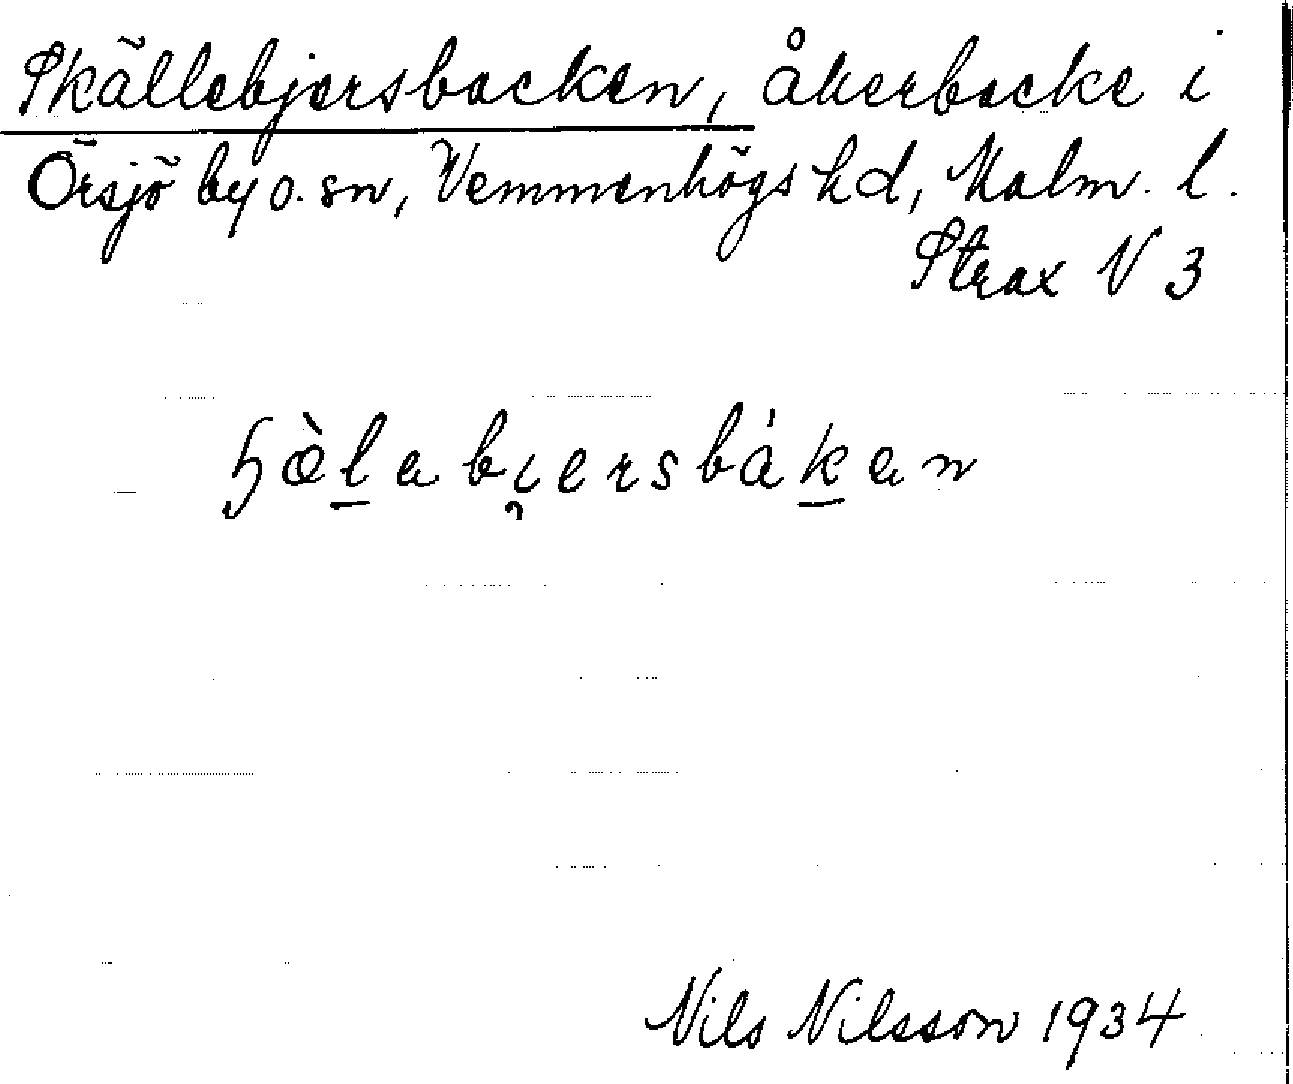 Skällebjersbacken, åkerbacke i
Örsjö by o. sn, Vemmenhögs hd, Malm. l.
Strax V 3
ɧæ̀l̠abi̯ersbák̠an
Nils Nilsson 1934